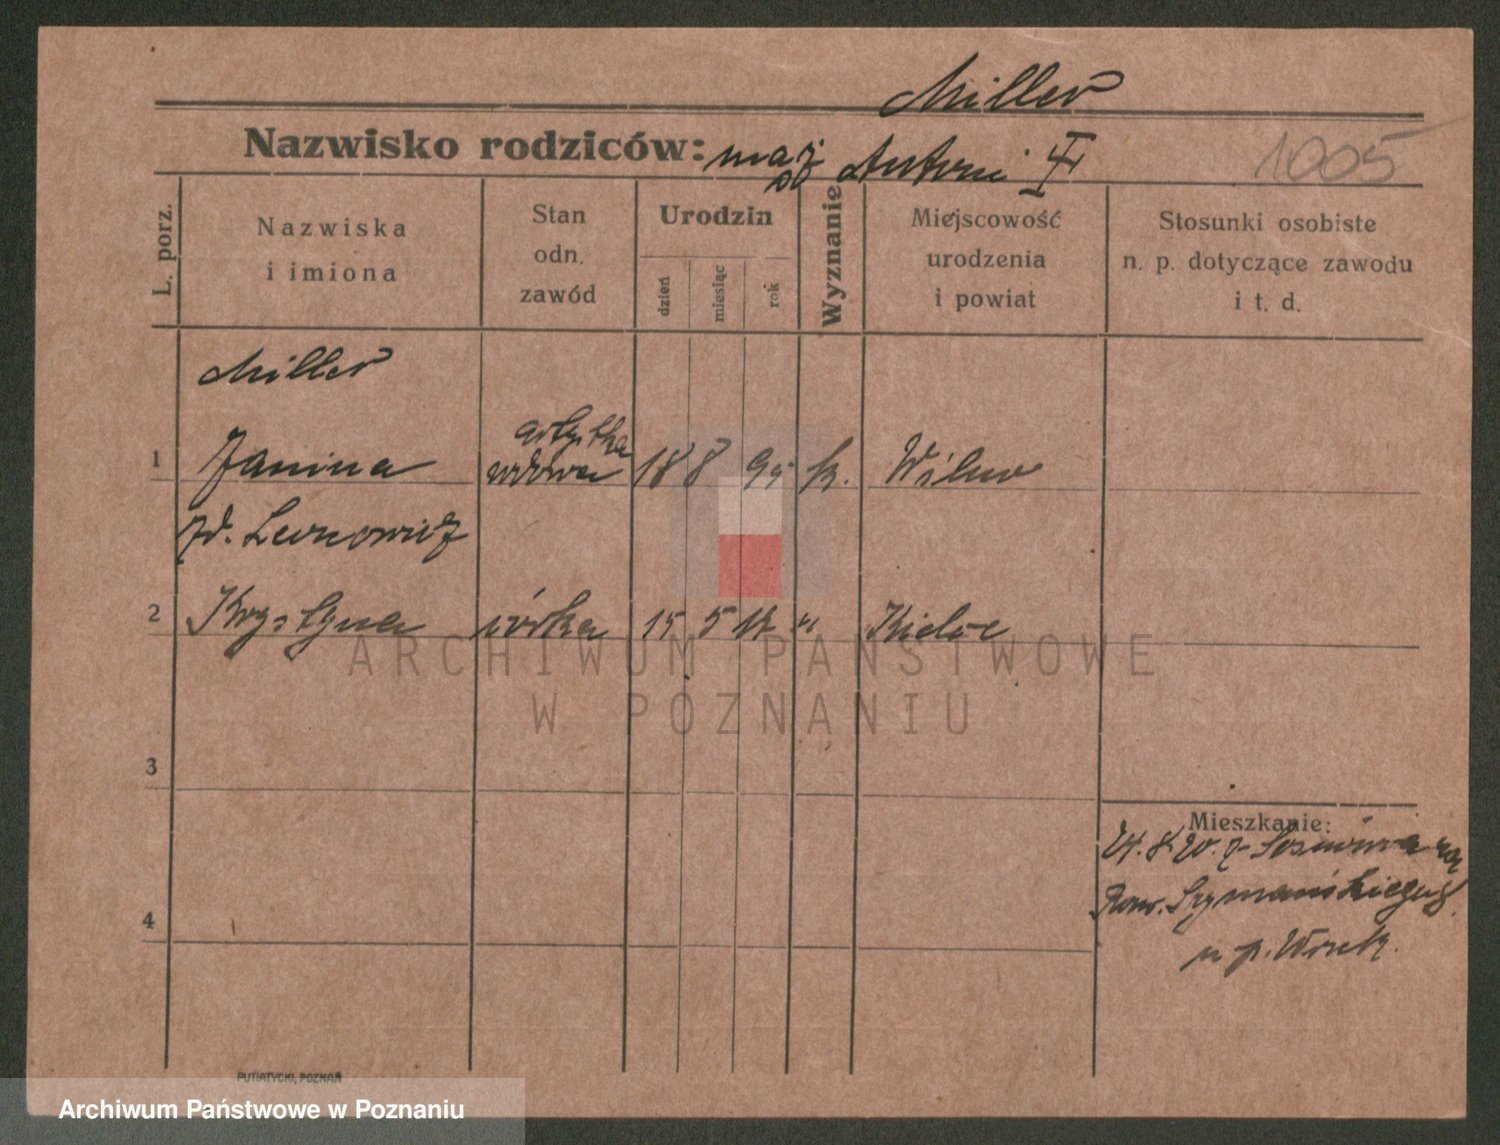 Miller
Nazwisko rodziców: mąż Antoni
1005
L. porz.
Nazwiska
i imiona
Stan
odn.
zawód
Urodzin
dzień
miesiąc
rok
Wyznanie
Miejscowość
urodzenia
i powiat
Stosunki osobiste
n. p. dotyczące zawodu
i t. d.
Miller
artystka
1 Janina wdowa 18 8 95 k. Wilno
zd. Leonowicz
2 Krystyna córka 15 5 17 " Kielce
ARCHIWUM PAŃSTWOWE
W POZNANIU
3
Mieszkanie:
24. 8 20. z Sosnowca
Szymańskiego 8.
4
u p.
PUTIATYCKI, POZNAŃ
Archiwum Państwowe w Poznaniu